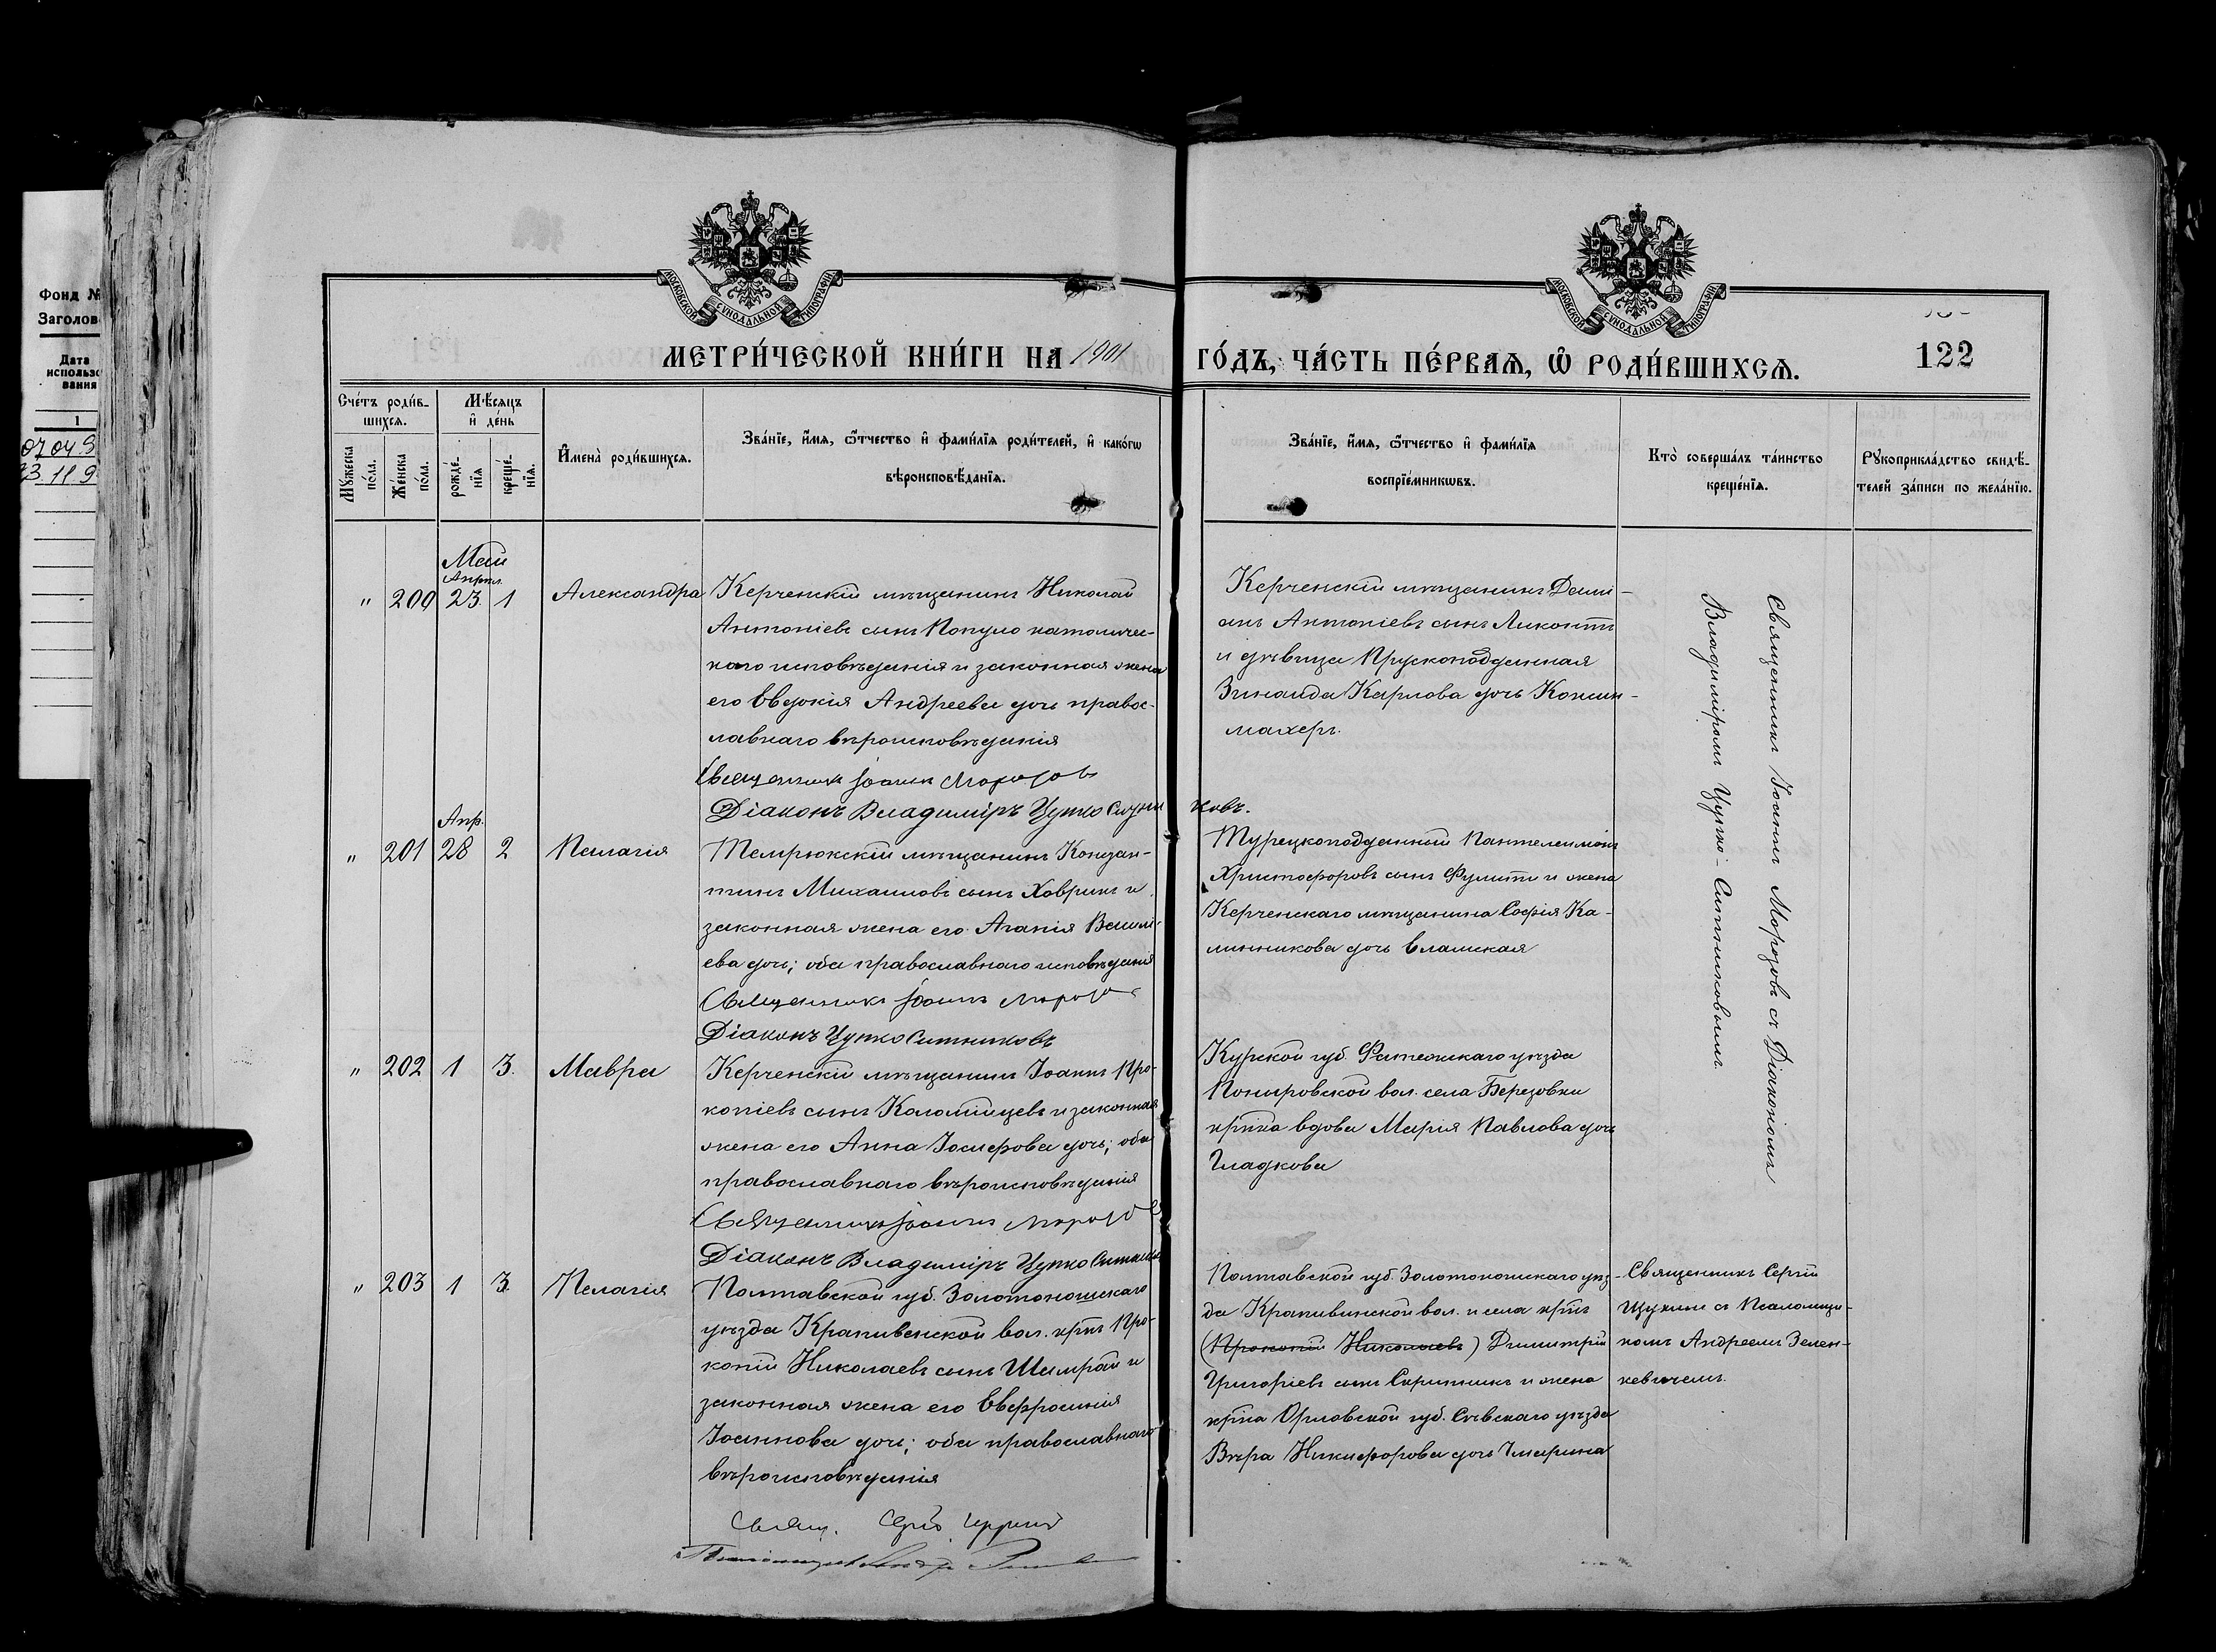 Фонд №
Заголов
Дата
использо
вания
1
07 04 9
23. 11. 9
МОСКОВСКОЙ СѴНОДАЛЬНОЙ ТИПОГРАФІИ
МОСКОВСКОЙ СѴНОДАЛЬНОЙ ТИПОГРАФІИ
МЕТРИ́ЧЕСКОЙ КНИ́ГИ НА 1901 ГО́ДЪ, ЧА́СТЬ ПЕ́РВАѦ, Ѡ҆ РОДИ́ВШИХСѦ.
122
Сче́тъ роди́в-
шихсѧ.
Мꙋ́жеска по́ла.
Же́нска по́ла.
Мѣ́сѧцъ
и҆ де́нь
рожде́-
нїѧ
креще́-
нїѧ.
И҆мена̀ роди́вшихсѧ.
Зва́нїе, и҆́мѧ, ѻ҆́тчество и҆ фами́лїѧ роди́телей, и҆ како́гѡ
вѣроисповѣ́данїѧ.
Зва́нїе, и҆́мѧ, ѻ҆́тчество и҆ фами́лїѧ
воспрїе́мникѡвъ.
Кто̀ соверша́лъ та́инство
креще́нїѧ.
Рꙋкоприкла́дство свидѣ́-
телей за́писи по жела́нїю.
Май
Апрѣл.
" 200 23. 1 Александра
Керченскій мѣщанинъ Николай
Антоніевъ сынъ Популо католичес-
каго исповѣданія и законная жена
его Евдокія Андреева дочь правос-
лавнаго вѣроисповѣданія
Священникъ Іоаннъ Морозовъ
Діаконъ Владиміръ Цупко Ситни ковъ.
Керченскій мѣщанинъ Деми-
анъ Антоніевъ сынъ Ликонти
и дѣвица Прускоподданная
Зинаида Карлова дочь
махеръ.
Священникъ Іоаннъ Морозовъ съ Діакономъ
Владиміромъ Цупко-Ситниковымъ.
Апр.
" 201 28 2 Пелагія
Темрюкскій мѣщанинъ Констан-
тинъ Михаиловъ сынъ Ховринъ и
законная жена его Агапія Василі-
ева дочь; оба православнаго исповѣданія
Священникъ Іоаннъ Морозовъ
Діаконъ Цупко Ситниковъ
Турецкоподданный Пантелеимонъ
Христофоровъ сынъ Фулити и жена
Керченскаго мѣщанина Софія Ка-
линникова дочь Еламская
" 202 1 3. Мавра
Керченскій мѣщанинъ Іоаннъ Про-
копіевъ сынъ Коломійцевъ и законная
жена его Анна Іосифова дочь; оба
православнаго вѣроисповѣданія
Священникъ Іоаннъ Морозов
Діаконъ Владиміръ Цупко Ситник
Курской губ. Фатежскаго уѣзда
Поныровской вол. села Березовки
крт҃ка вдова Марія Павлова дочь
Гладкова
" 203 1 3. Пелагія
Полтавской губ. Золотоношскаго
уѣзда Крапивенской вол. крт҃нъ Про-
копій Николаевъ сынъ Шамрай и
законная жена его Евфросинія
Іоаннова дочь; оба православнаго
вѣроисповѣданія
Свящ. Сергій Щукин
Полтавской губ. Золотоношскаго уѣз-
да Крапивинской вол. и села крт҃нъ
(Прокопій Николаевъ) Димитрій
Григоріевъ сынъ Скритникъ и жена
крт҃на Орловской губ. Сѣвскаго уѣзда
Вѣра Никифорова дочь Чмарина
Священникъ Сергій
Щукинъ съ Псаломщи-
комъ Андреемъ Зелен-
кевичемъ.